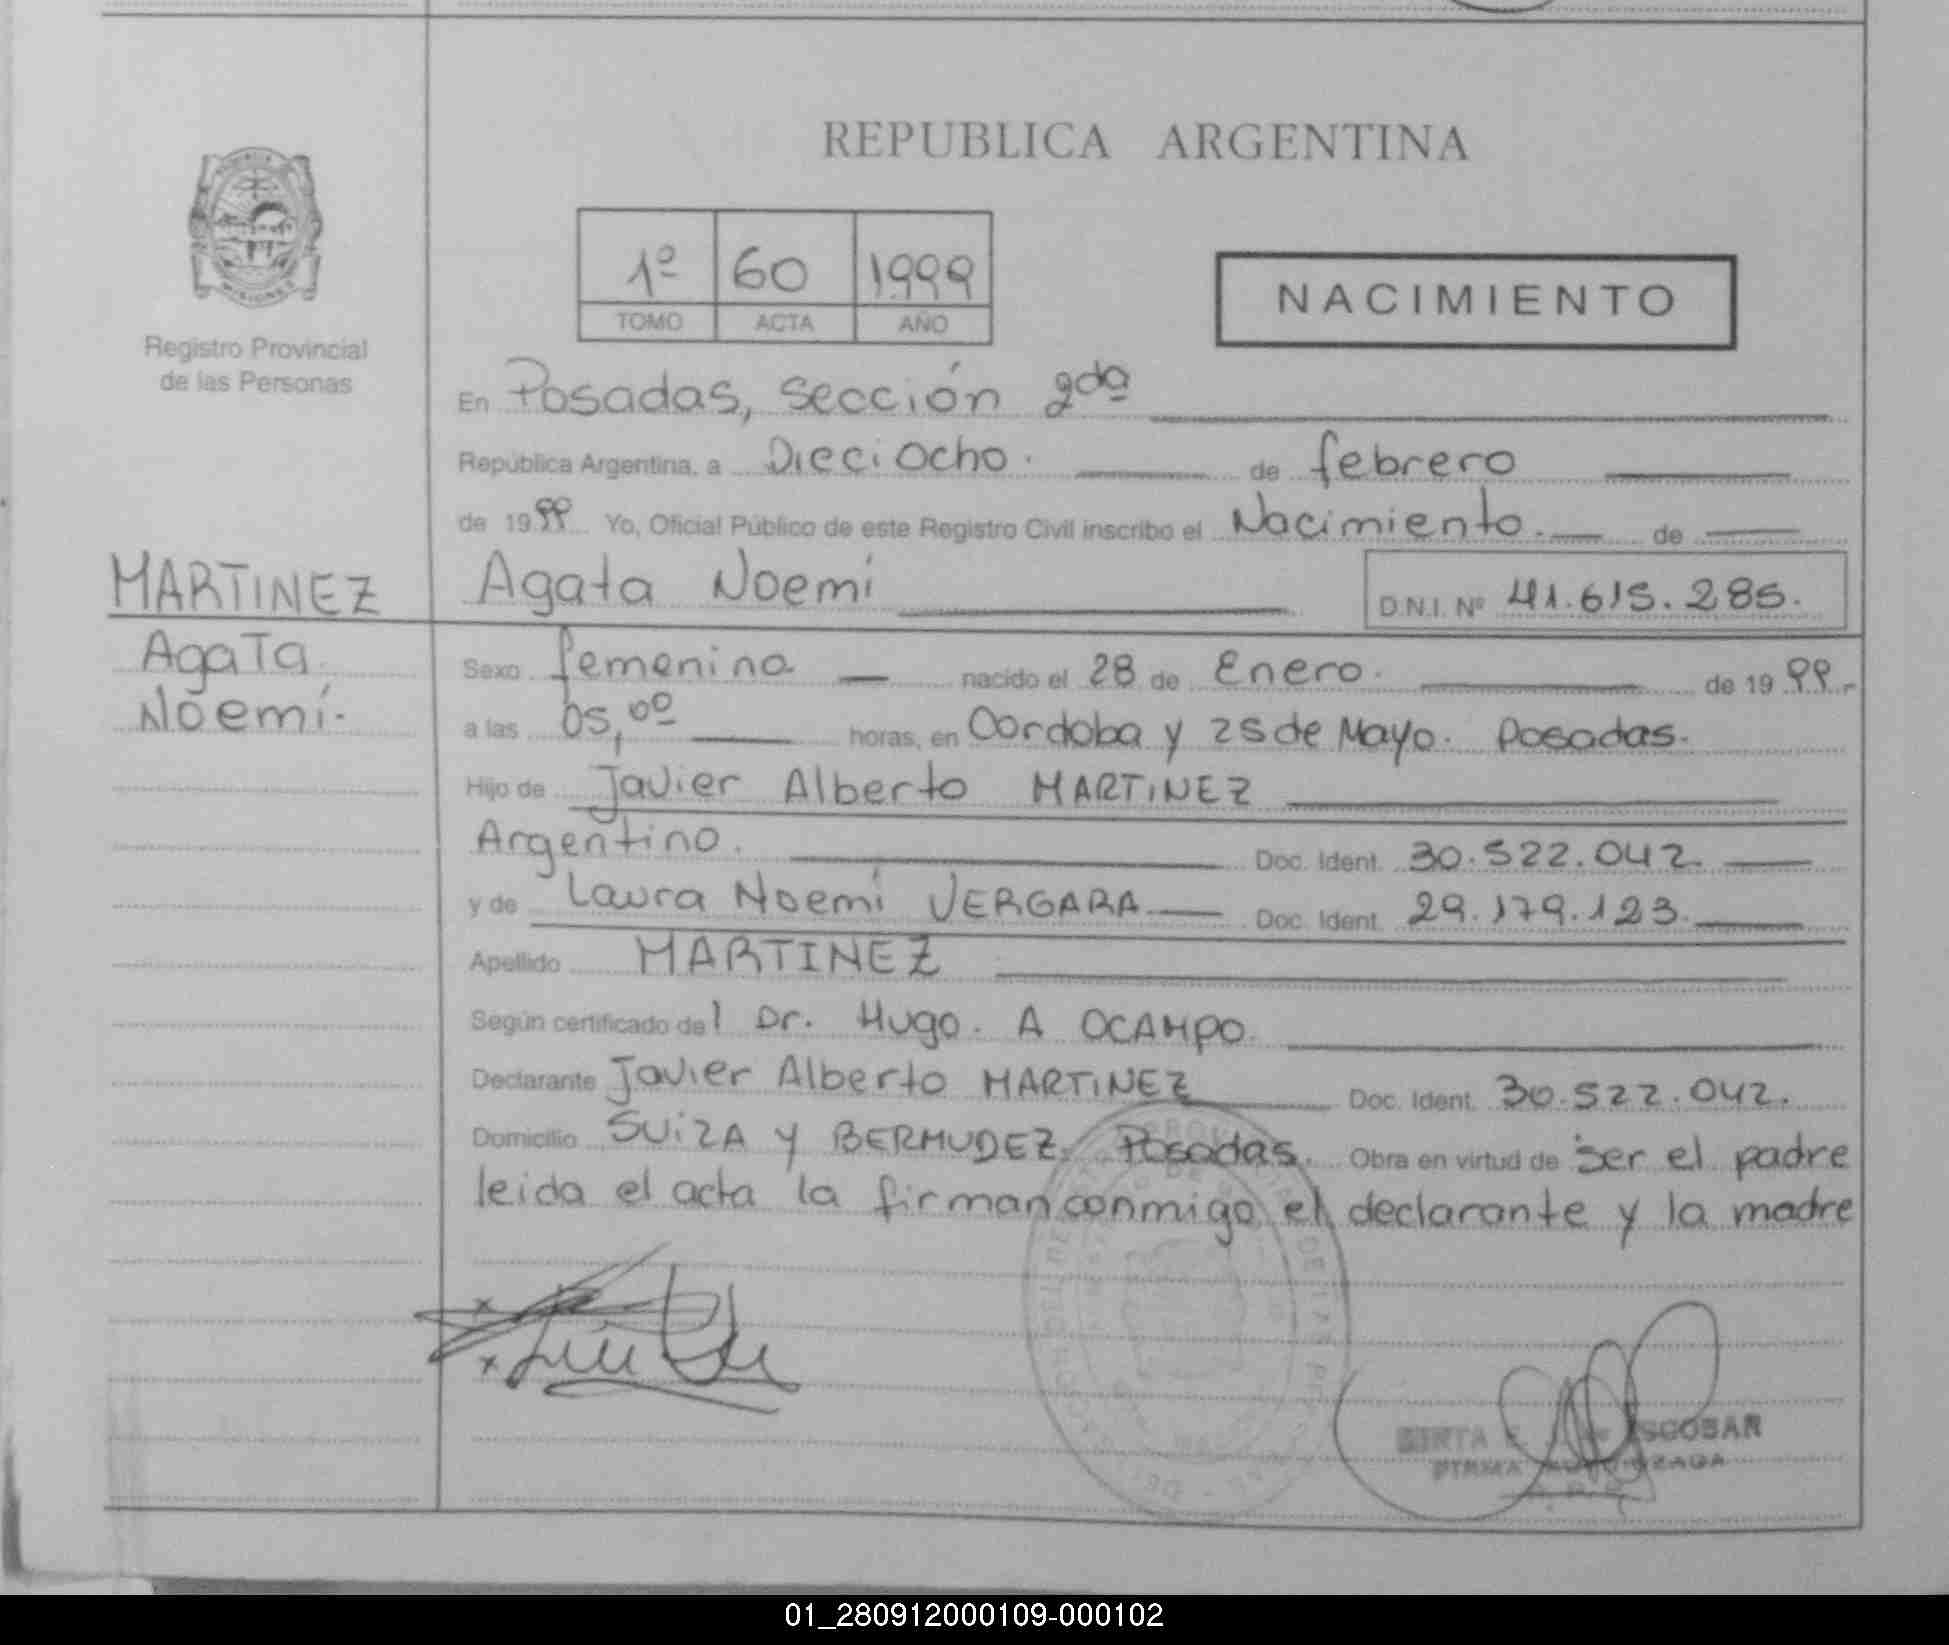 REPUBLICA ARGENTINA
1º 60 1999
TOMO ACTA AÑO
NACIMIENTO
MISIONES
Registro Provincial
de las Personas
En Posadas, sección 2da
República Argentina, a Dieciocho. de febrero
de 1999 Yo, Oficial Público de este Registro Civil inscribo el Nacimiento. de
MARTINEZ
Agata
Noemí.
Agata Noemí D.N.I. Nº 41.615.285.
Sexo femenino nacido el 28 de Enero. de 1999.-
a las 05,00 horas, en Cordoba y 25 de Mayo. Posadas.
Hijo de Javier Alberto MARTINEZ
Argentino. Doc. Ident. 30.522.042.
y de Laura Noemí VERGARA Doc. Ident. 29.179.123.
Apellido MARTINEZ
Según certificado del Dr. Hugo. A OCAMPO.
Declarante Javier Alberto MARTINEZ Doc. Ident. 30.522.042.
Domicilio SUIZA Y BERMUDEZ. Posadas. Obra en virtud de ser el padre
leida el acta la firman conmigo el declarante y la madre
ESCOBAR
FIRMA AUTORIZADA
01_280912000109-000102